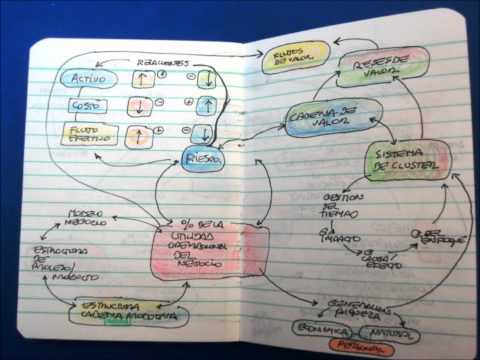 RELACIONES
ACTIVO
↑ + - ↓
COSTO
↓ + - ↑
FLUJO
EFECTIVO
↑ + - ↓
RIESGO
MODELO
NEGOCIO
ESTRUCTURA
DE
% DE LA
UTILIDAD
OPERACIONAL
DEL
NEGOCIO
ESTRUCTURA
CADENA PRODUCTIVA
FLUJOS
DE VALOR
REDES DE
VALOR
CADENA DE
VALOR
SISTEMA
DE CLUSTER
GESTION
DEL
TIEMPO
IMPACTO
CAUSA/
EFECTO
ENFOQUE
GENERACION
RIQUEZA
ECONOMICA
NATURAL
PERSONAL